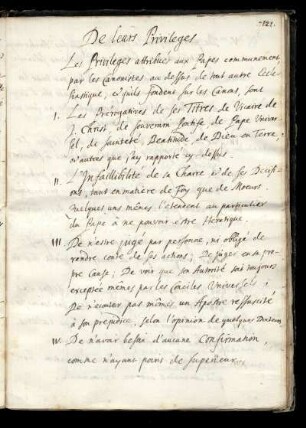 De leurs Privileges
Les Privileges attribués aux Papes communement
par les Canonistes au dessus de tout autre Eccle
siastique, et qu'ils fondent sur les Canons, sont
I. Les Prerogatives de ses Titres de Vicaire de
J. Christ, de souverain Pontife de Pape Univer
sel, de Sainteté, Beatitude, de Dieu en Terre,
et autres que j'ay rapporté cy dessus.
II. L'Infaillibilité de sa Chaire et de ses Decisi
ons, tout en matiere de Foy que de Moeurs.
Quelques uns mêmes l'etendent au particulier
du Pape à ne pouvoir être Heretique.
III. De n'estre jugé par personne, ni obligé de
rendre conte de ses actions; De juger en sa pro
pre Cause; De voir que son Autorité soit toujours
exceptée mêmes par les Conciles Universels;
De n'ecouter pas mêmes un Apostre ressuscité
à son prejudice, selon l'opinion de quelques Docteurs
IV. De n'avoir besoin d'aucune Confirmation,
comme n'ayant point de superieur.